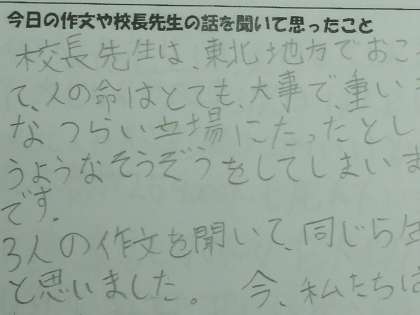 今日の作文や校長先生の話を聞いて思ったこと
校長先生は、東北地方でおこ
て、人の命はとても、大事で、重い
なつらい立場にたったとし
うようなそうぞうをしてしまいま
です。
3人の作文を聞いて、同じら
と思いました。 今、私たちは